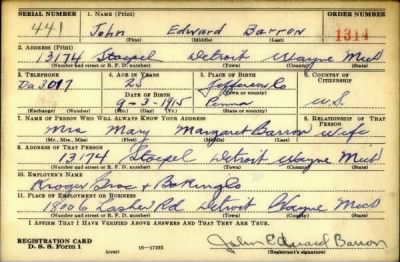 SERIAL NUMBER 1. NAME (Print) ORDER NUMBER
441 John Edward Barron 1314
(First) (Middle) (Last)
2. ADDRESS (Print)
13174 Stoepel Detroit Wayne Mich
(Number and street or R. F. D. number) (Town) (County) (State)
3. TELEPHONE 4. AGE IN YEARS 5. PLACE OF BIRTH 6. COUNTRY OF CITIZENSHIP
25 Jefferson Co
DATE OF BIRTH (Town or county)
9-3-1915 Penna U.S.
(Exchange) (Number) (Mo.) (Day) (Yr.) (State or country)
7. NAME OF PERSON WHO WILL ALWAYS KNOW YOUR ADDRESS 8. RELATIONSHIP OF THAT PERSON
Mrs Mary Margaret Barron Wife
(Mr., Mrs., Miss) (First) (Middle) (Last)
9. ADDRESS OF THAT PERSON
13174 Stoepel Detroit Wayne Mich
(Number and street or R. F. D. number) (Town) (County) (State)
10. EMPLOYER'S NAME
Kroger Groc & Baking Co
11. PLACE OF EMPLOYMENT OR BUSINESS
Lasher Rd Detroit Wayne Mich
(Number and street or R. F. D. number) (Town) (County) (State)
I AFFIRM THAT I HAVE VERIFIED ABOVE ANSWERS AND THAT THEY ARE TRUE.
REGISTRATION CARD
D. S. S. Form 1 John Edward Barron
(Registrant's signature)